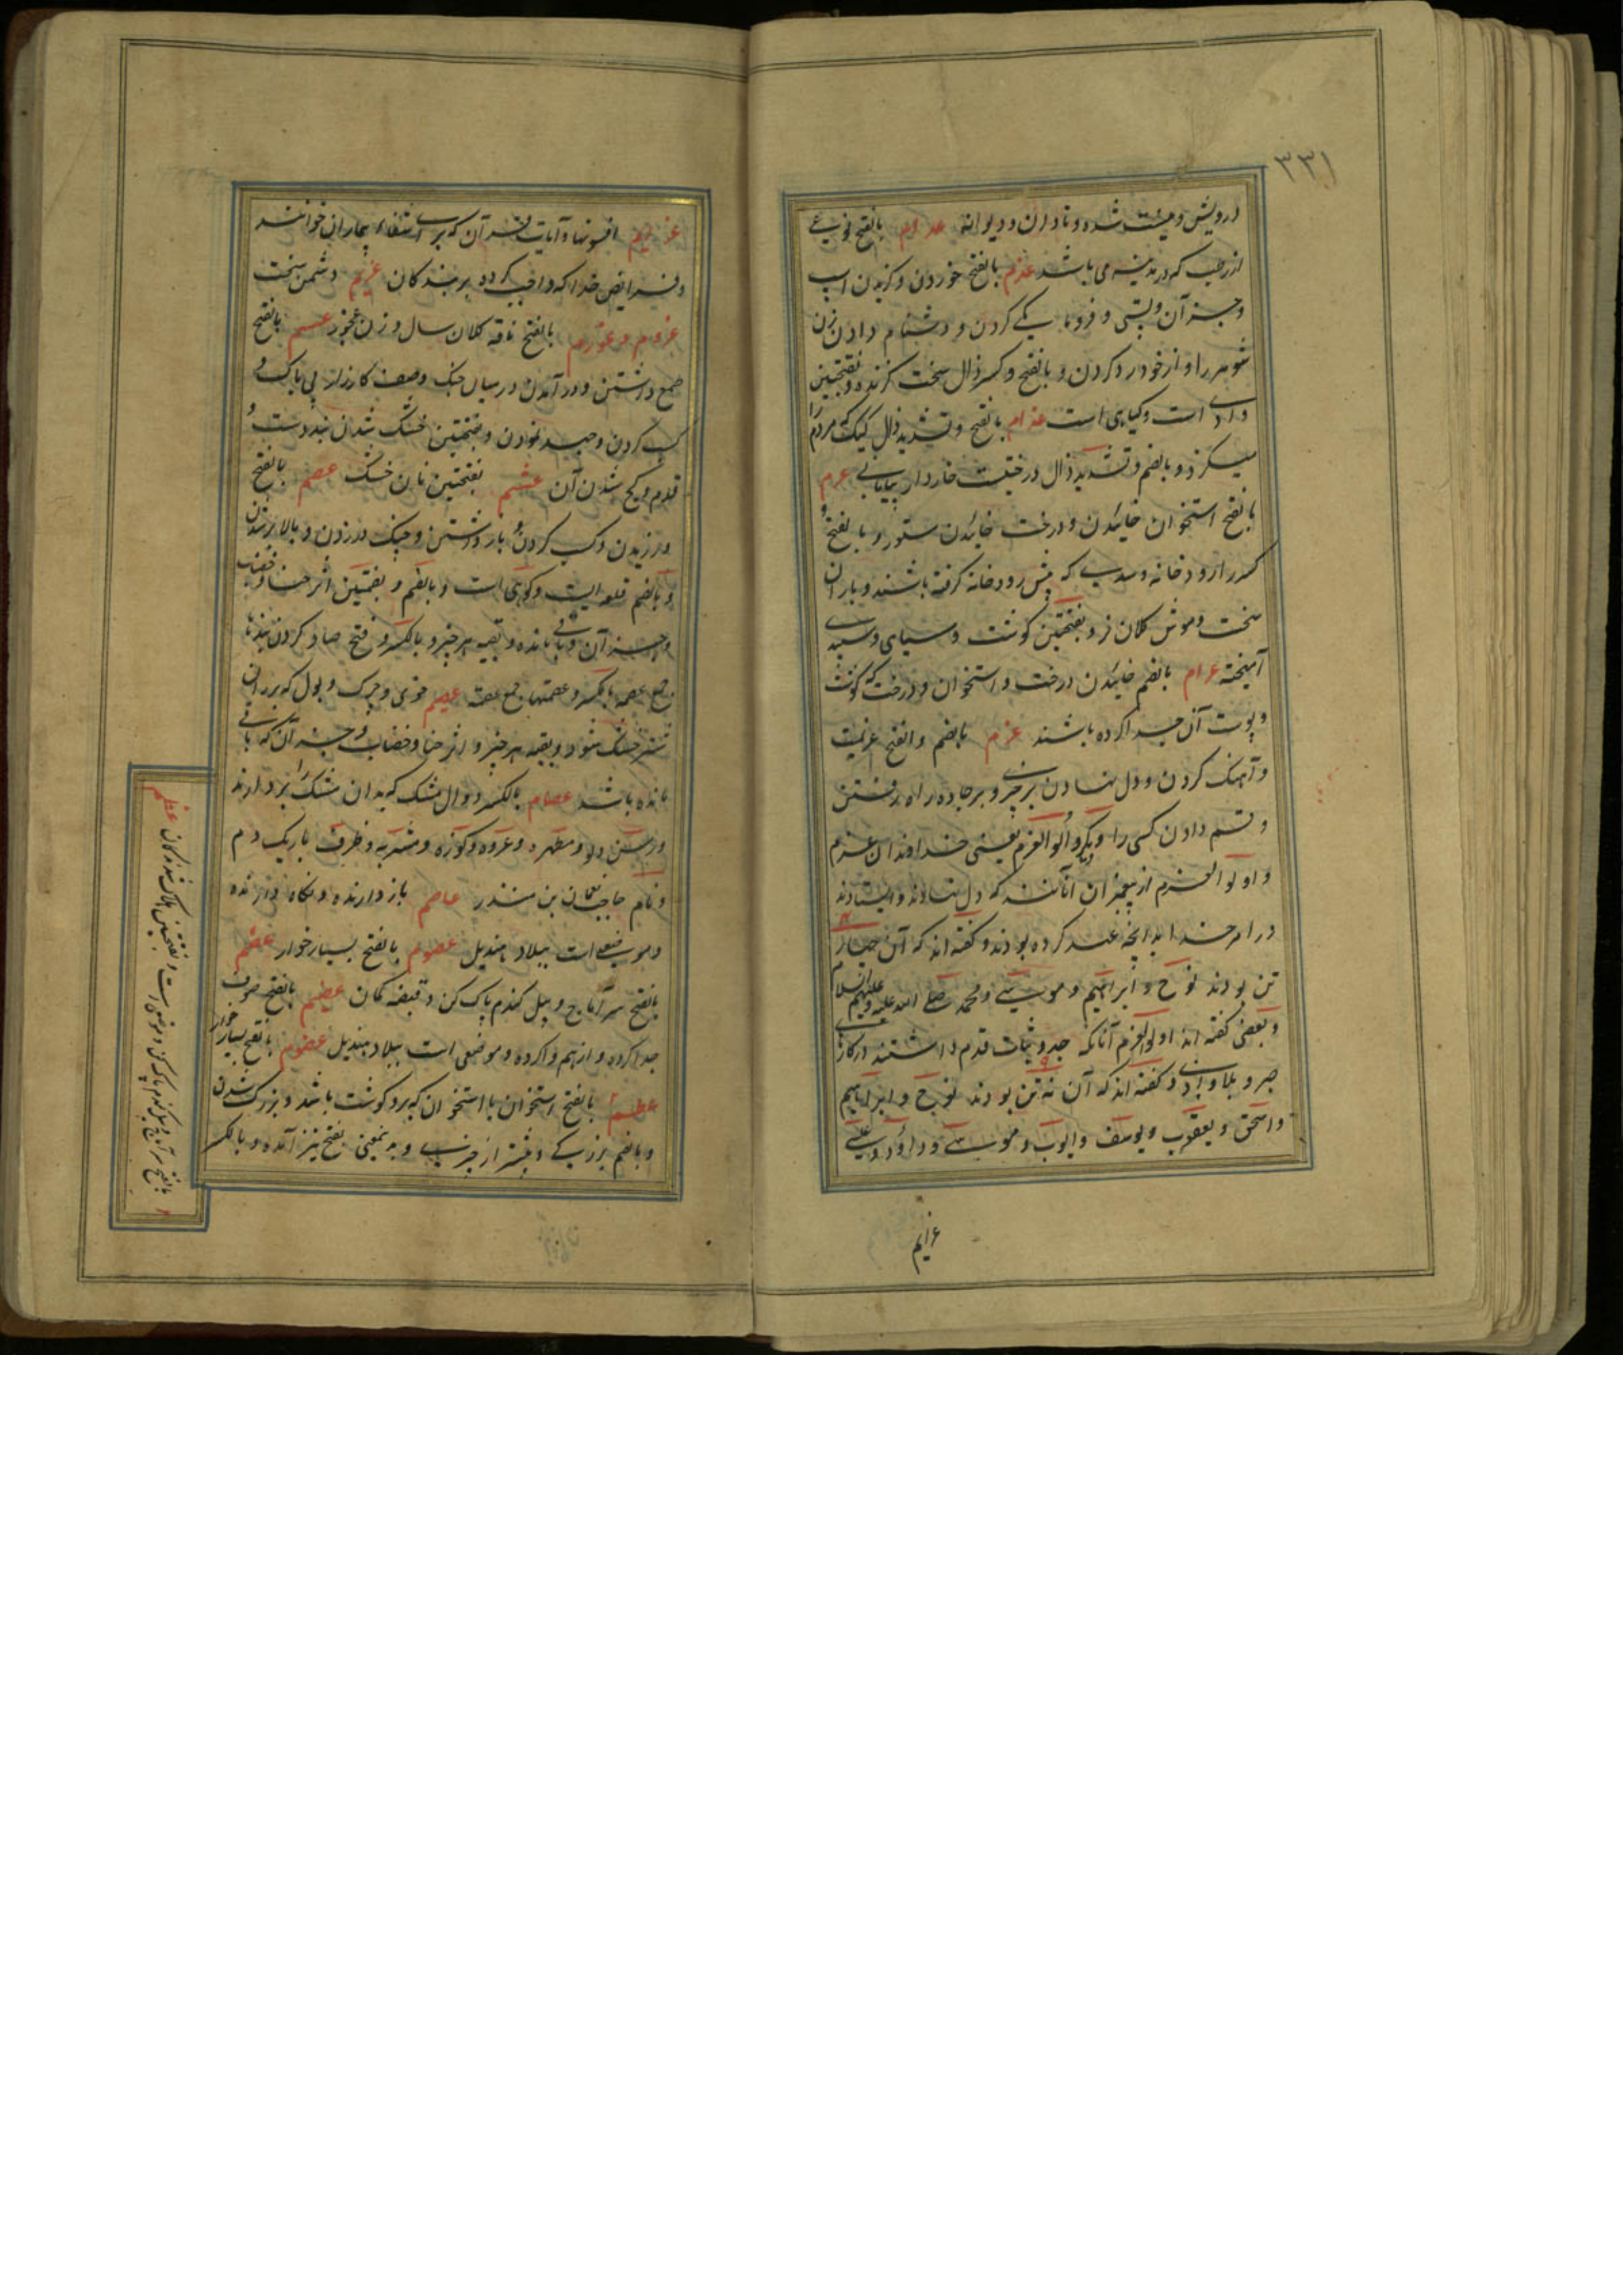 ۳۳۱
درویش و نیست شده و نادان و دیوانه عدام بالفتح نوعی
از رطب که در مدینه می باشد عذم بالفتح خوردن و گزیدن اسپ
و جز آن و پستی و فرومایگی کردن و دشنام دادن زن
شوهر را و از خود رد کردن و بالفتح و کسر ذال سخت گزنده و بفتحتین
وادی است و گیاهی است عذام بالفتح و تشدید ذال کیک که مردم را
میگزد و بالضم و تشدید ذال درختیست خاردار بیابانی عرم
بالفتح استخوان خائیدن و درخت خائیدن ستور و بالفتح و
کسر را رودخانه و سدی که پیش رودخانه گرفته باشند و باران
سخت و موش کلان نر و بفتحتین گوشت و سیاهی و سپیدی
آمیخته عرام بالضم خائیدن درخت و استخوان و درخت که گوشت
و پوست آن جدا کرده باشند عزم بالضم و الفتح عزیمت
و آهنگ کردن و دل نهادن بر چیزی و بر جاده راه رفتن
و قسم دادن کسی را و اولوالعزم یعنی خداوندان عزم
و اولوالعزم از پیغمبران آنانند که دل نهادند و ایستادند
در امر خدا به آنچه عهد کرده بودند و گفته اند که آن چهار
تن بودند نوح و ابراهیم و موسی و محمد صلی الله علیه و علیهم السلام
و بعضی گفته اند اولوالعزم آنانکه جد و ثبات قدم داشتند در کارهای
صبر و بلا و گفته اند که آن نه تن بودند نوح و ابراهیم
و اسحق و یعقوب و یوسف و ایوب و موسی و داود و عیسی
عزایم
عزایم افسونها و آیات قرآن که برای شفاء بیماران خوانند
و فرایض خدا که واجب کرده بر بندگان عزیم دشمن سخت
عزوم و عوزم بالفتح ناقه کلان سال و زن عجوز عسم بالفتح
طمع داشتن و در آمدن در میان جنگ وصف کارزار بی باک و
کسب کردن و جهد نمودن و بفتحتین خشک شدن بند دست و
قدم و کج شدن آن عشم بفتحتین نان خشک عصم بالفتح
ورزیدن و کسب کردن و باز داشتن و چنگ در زدن و بالا بر شدن
و بالضم قلعه ایست و کوهی است و بالضم و بضمتین اثر حنا و خضاب
و جز آن و باقی مانده و بقیه هر چیز و بالکسر و فتح صاد گردن بندها
جمع عصمه بالکسر و عصمتها جمع عصمة عصیم خوی و چرک و بول که بر ران
شتر خشک شود و بقیه هر چیز و اثر حنا و خضاب و جز آن که باقی
مانده باشد عصام بالکسر دوال مشک که بدان مشک را بردارند
و رسن دلو و مطهره و عروه و کوزه و مشربه و ظرف باریک دم
و نام حاجب نعمان بن منذر عاصم باز دارنده و نگاه دارنده
و موضعی است ببلاد هذیل عصوم بالفتح بسیار خوار عضم
بالفتح سر آماج و بیل گندم پاک کن و قبضه کمان عضیم بالفتح
جدا کرده و از هم وا کرده و موضعی است ببلاد هذیل عضوم بالفتح بسیار خوار
عظم بالفتح استخوان یا استخوان که برو گوشت باشد و بزرگ شدن
و بالضم بزرگی و بیشتر از چیزی و بدینمعنی بفتح نیز آمده و بالکسر
بالفتح سر آماج و بیل گندم پاک کن و موضعی است و بفتحتین هلاک شدگان عطم